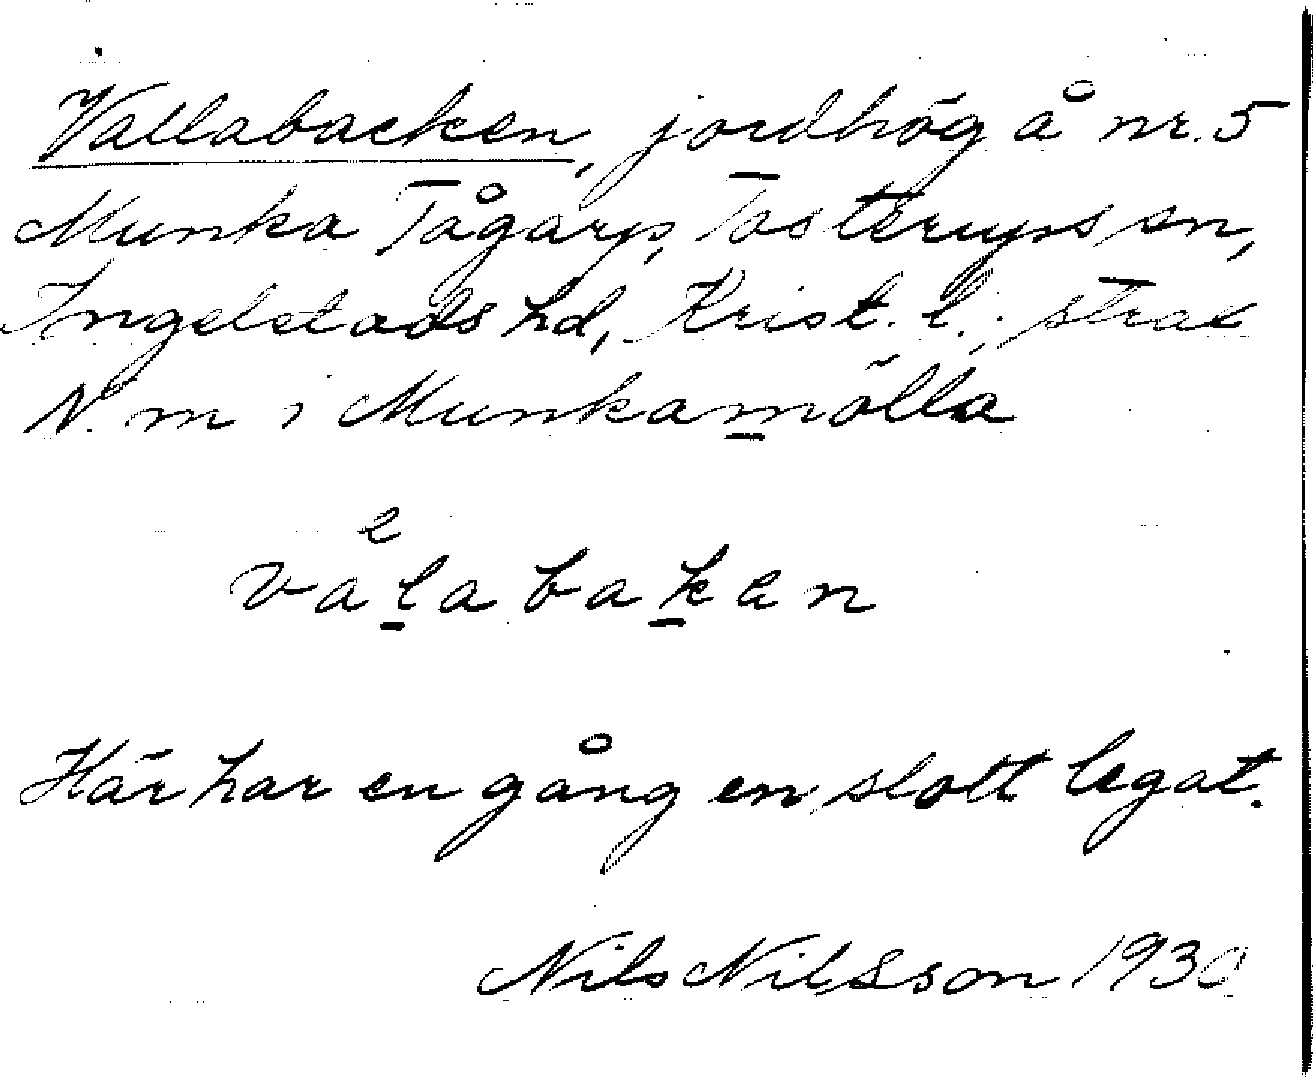 Vallabacken, jordhög å nr. 5
Munka Tågarp, Tosterups sn,
Ingelstads hd, Krist. l.; strax
N. om i Munkamölla
e
valabaken
Här har en gång en slott legat.
Nils Nilsson 1930